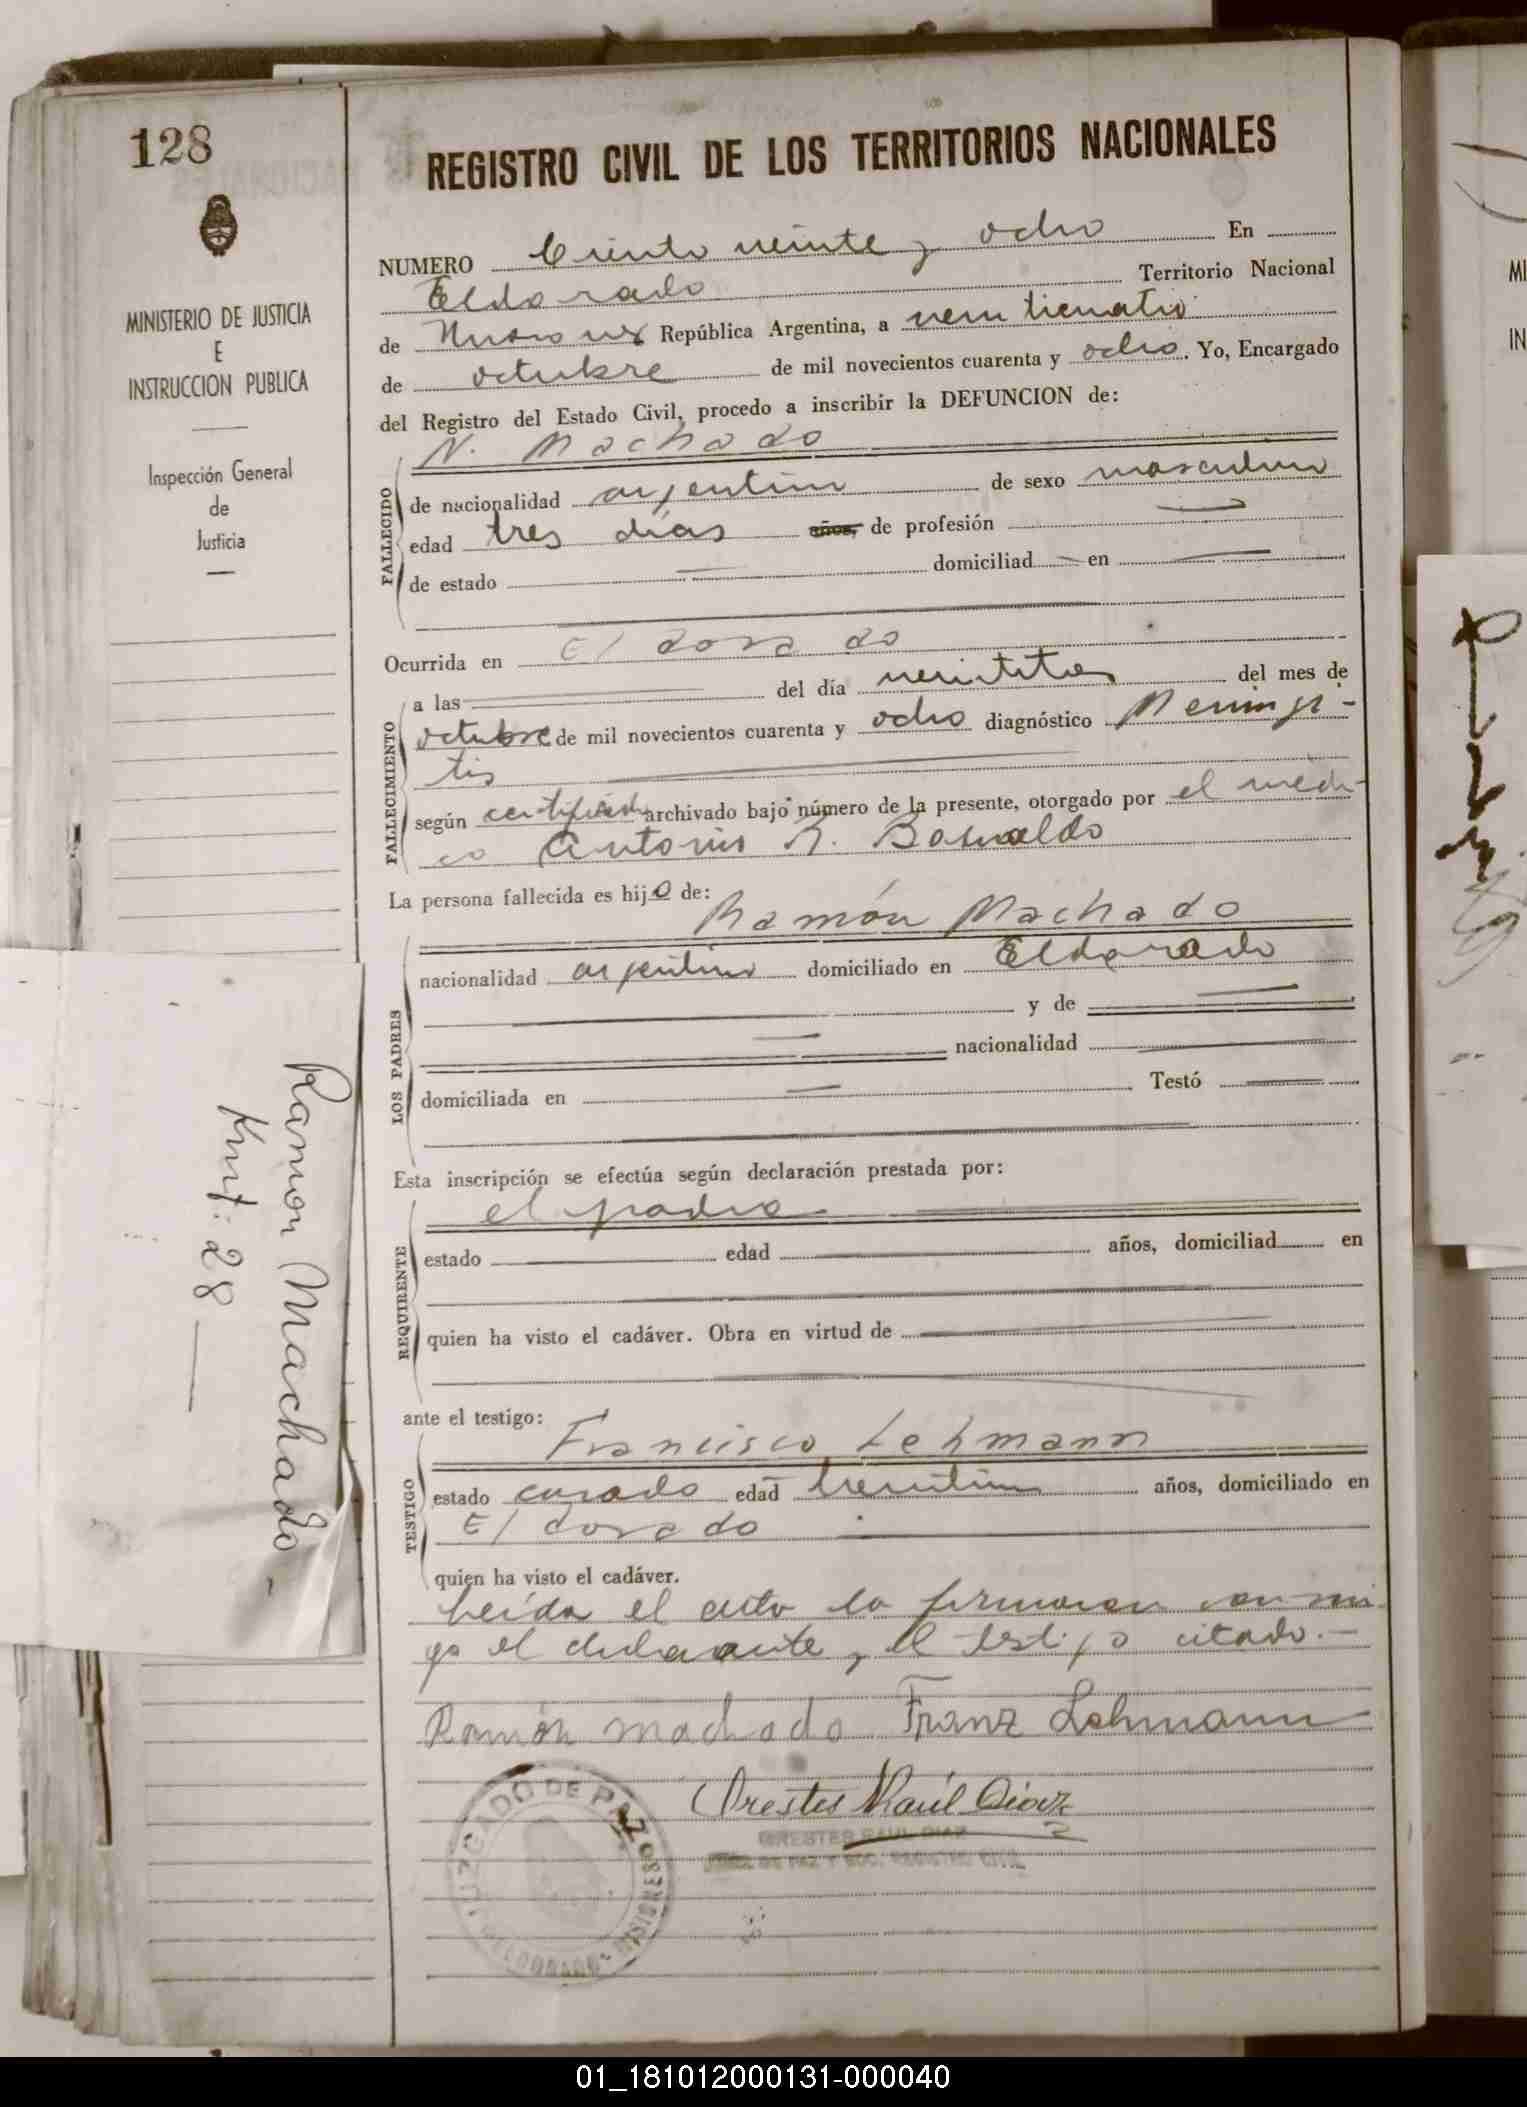 128
MINISTERIO DE JUSTICIA
E
INSTRUCCION PUBLICA
Inspección General
de
Justicia
REGISTRO CIVIL DE LOS TERRITORIOS NACIONALES
NUMERO Ciento veinte y ocho En
Eldorado Territorio Nacional
de Misiones República Argentina, a veinticuatro
de octubre de mil novecientos cuarenta y ocho. Yo, Encargado
del Registro del Estado Civil, procedo a inscribir la DEFUNCION de:
N. Machado
FALLECIDO
de nacionalidad argentina de sexo masculino
edad tres días años, de profesión —
de estado — domiciliad — en —
Ocurrida en Eldorado
FALLECIMIENTO
a las — del día veintitres del mes de
octubre de mil novecientos cuarenta y ocho diagnóstico Meningi-
tis
según certificado archivado bajo número de la presente, otorgado por el médi-
co Antonio R. Basualdo
La persona fallecida es hijo de:
Ramón Machado
LOS PADRES
nacionalidad argentino domiciliado en Eldorado
y de —
— nacionalidad —
domiciliada en — Testó —
Esta inscripción se efectúa según declaración prestada por:
el padre
REQUIRENTE
estado — edad — años, domiciliad en
quien ha visto el cadáver. Obra en virtud de —
ante el testigo:
Francisco Lehmann
TESTIGO
estado casado edad años, domiciliado en
Eldorado
quien ha visto el cadáver.
Leída el acta la firmaron conmi-
go el declarante y el testigo citado.—
Ramón Machado Franz Lehmann
Orestes Raúl Diaz
ORESTES RAUL DIAZ
JUEZ DE PAZ Y ENC. REGISTRO CIVIL
JUZGADO DE PAZ
ELDORADO - MISIONES
Ramon Machado -
Knt: 28 —
01_181012000131-000040